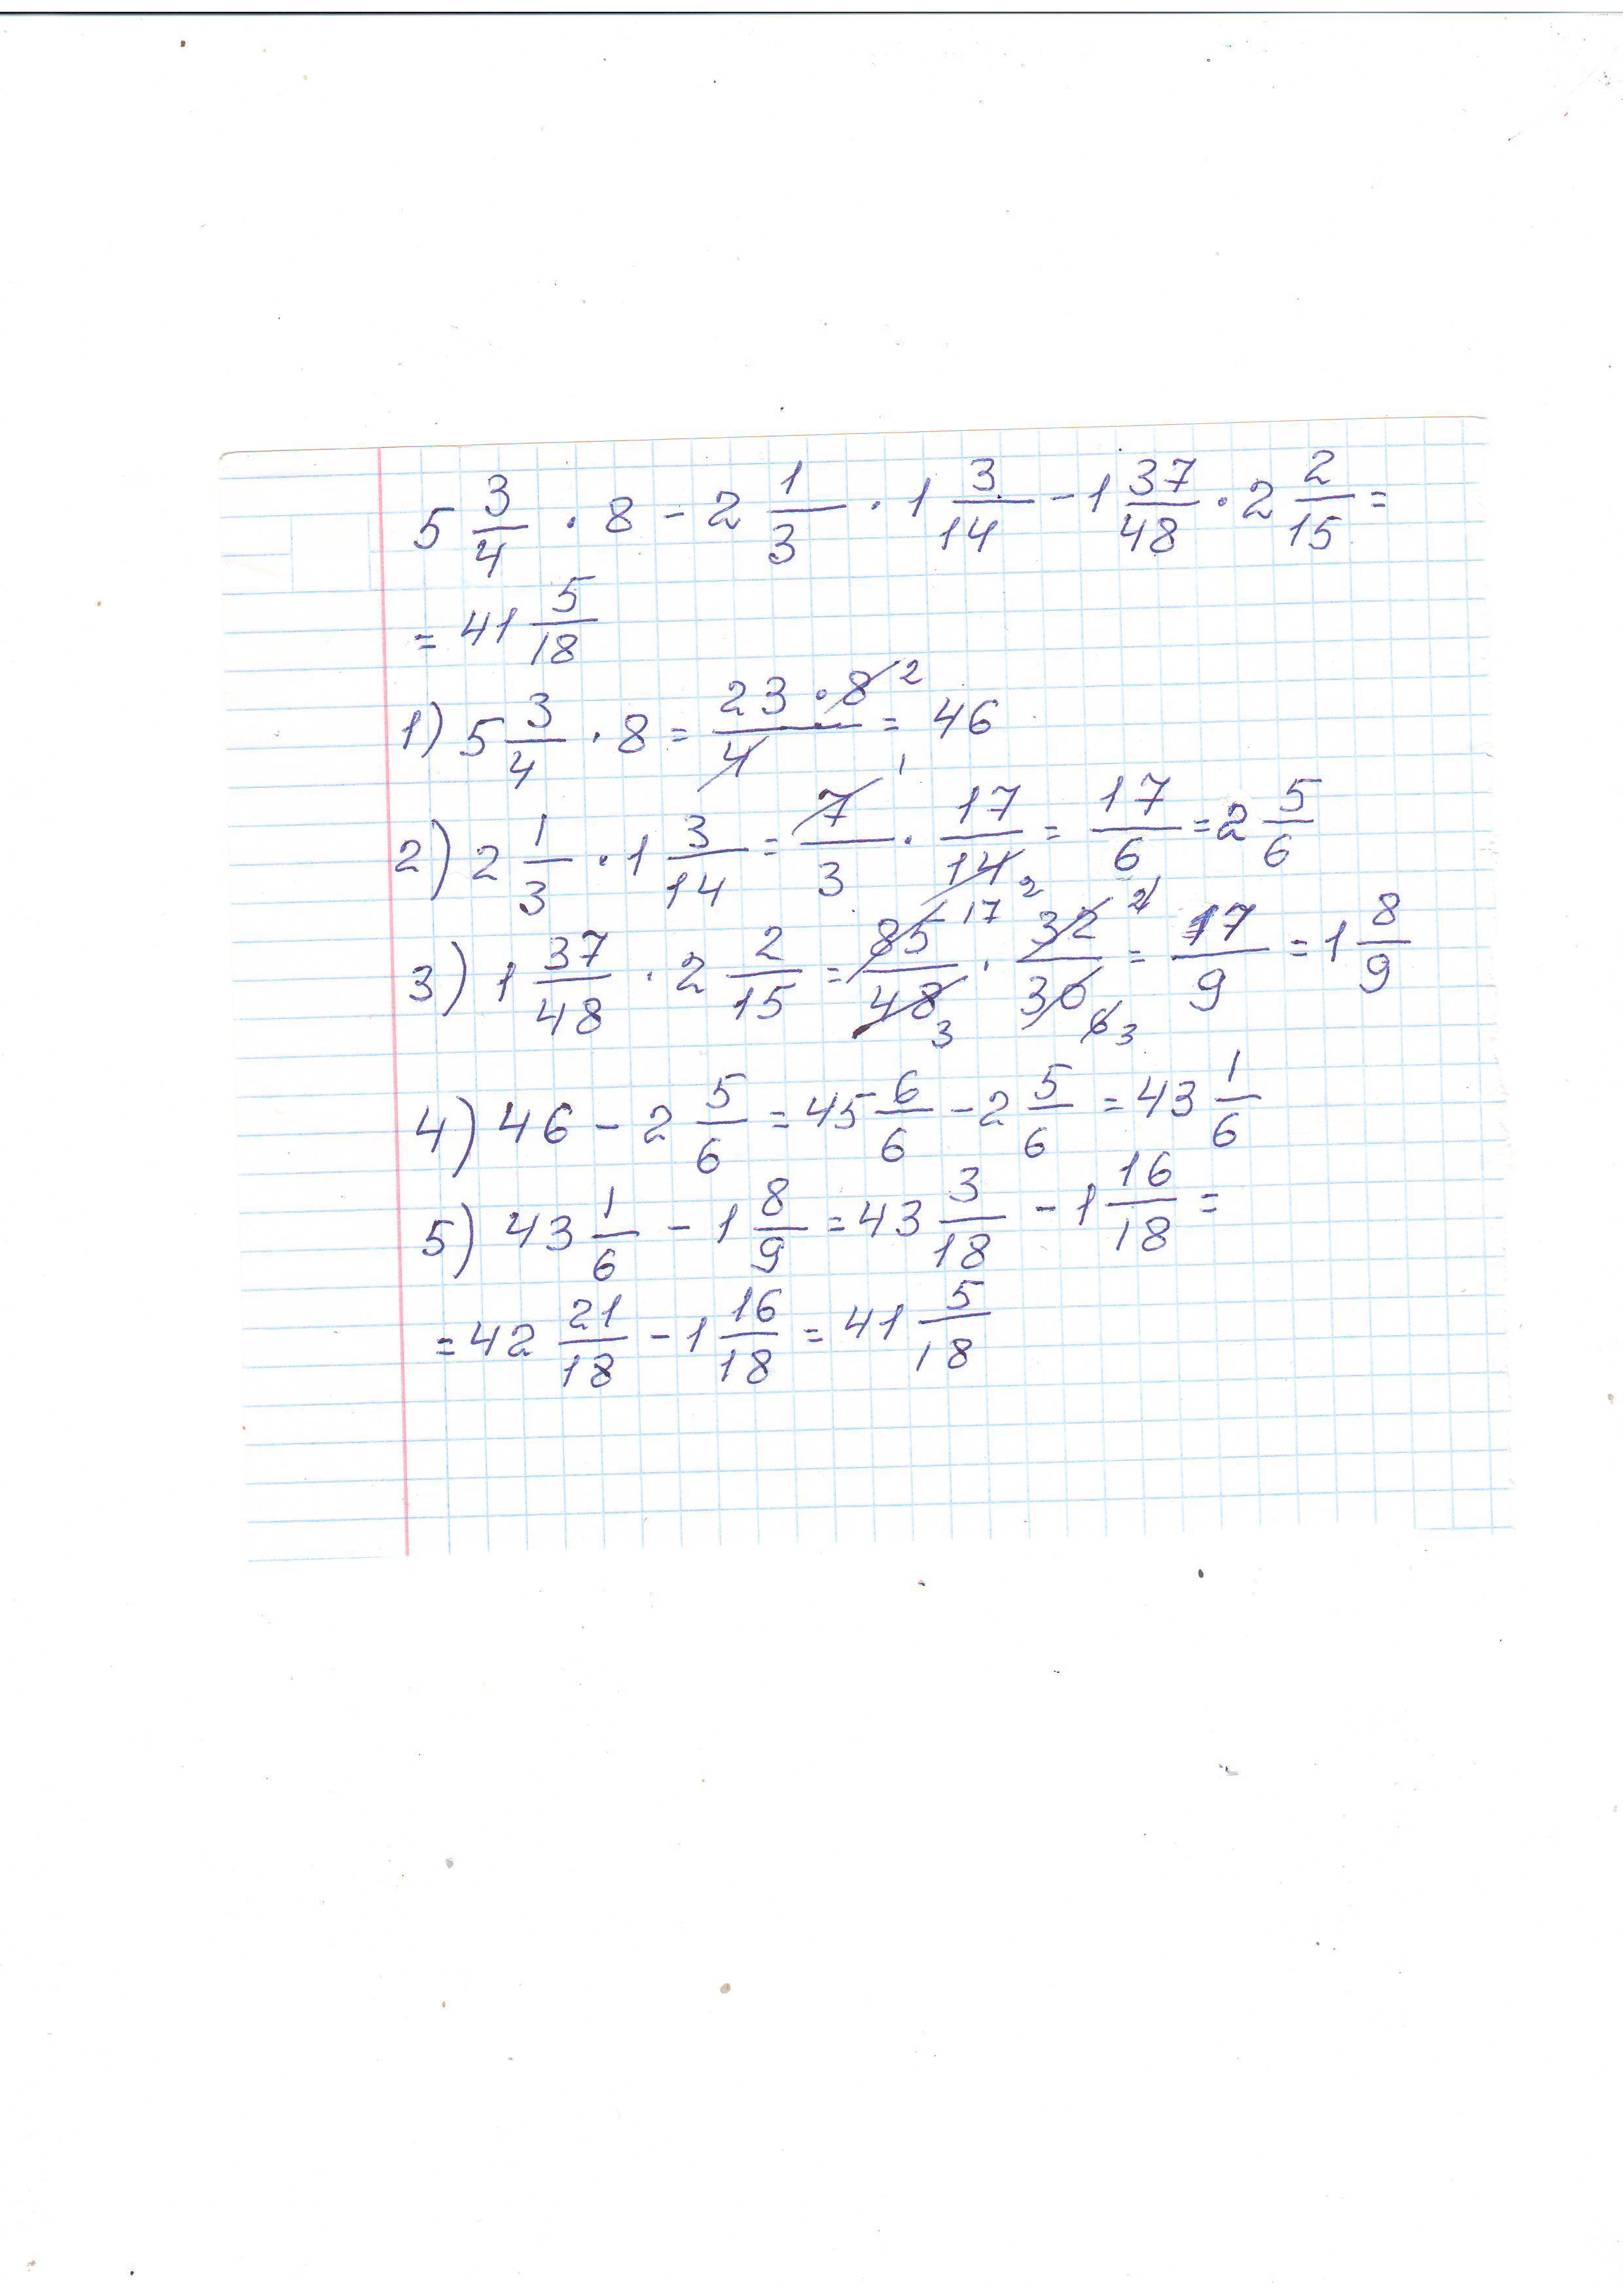 5 3/4 · 8 - 2 1/3 · 1 3/14 - 1 37/48 · 2 2/15 =
= 41 5/18
1) 5 3/4 · 8 = 23 · 8 2/4 = 46
2) 2 1/3 · 1 3/14 = 7 1/3 · 17/14 2 = 17/6 = 2 5/6
3) 1 37/48 · 2 2/15 = 85 17/48 3 · 32 2/30 6 3 = 17/9 = 1 8/9
4) 46 - 2 5/6 = 45 6/6 - 2 5/6 = 43 1/6
5) 43 1/6 - 1 8/9 = 43 3/18 - 1 16/18 =
= 42 21/18 - 1 16/18 = 41 5/18